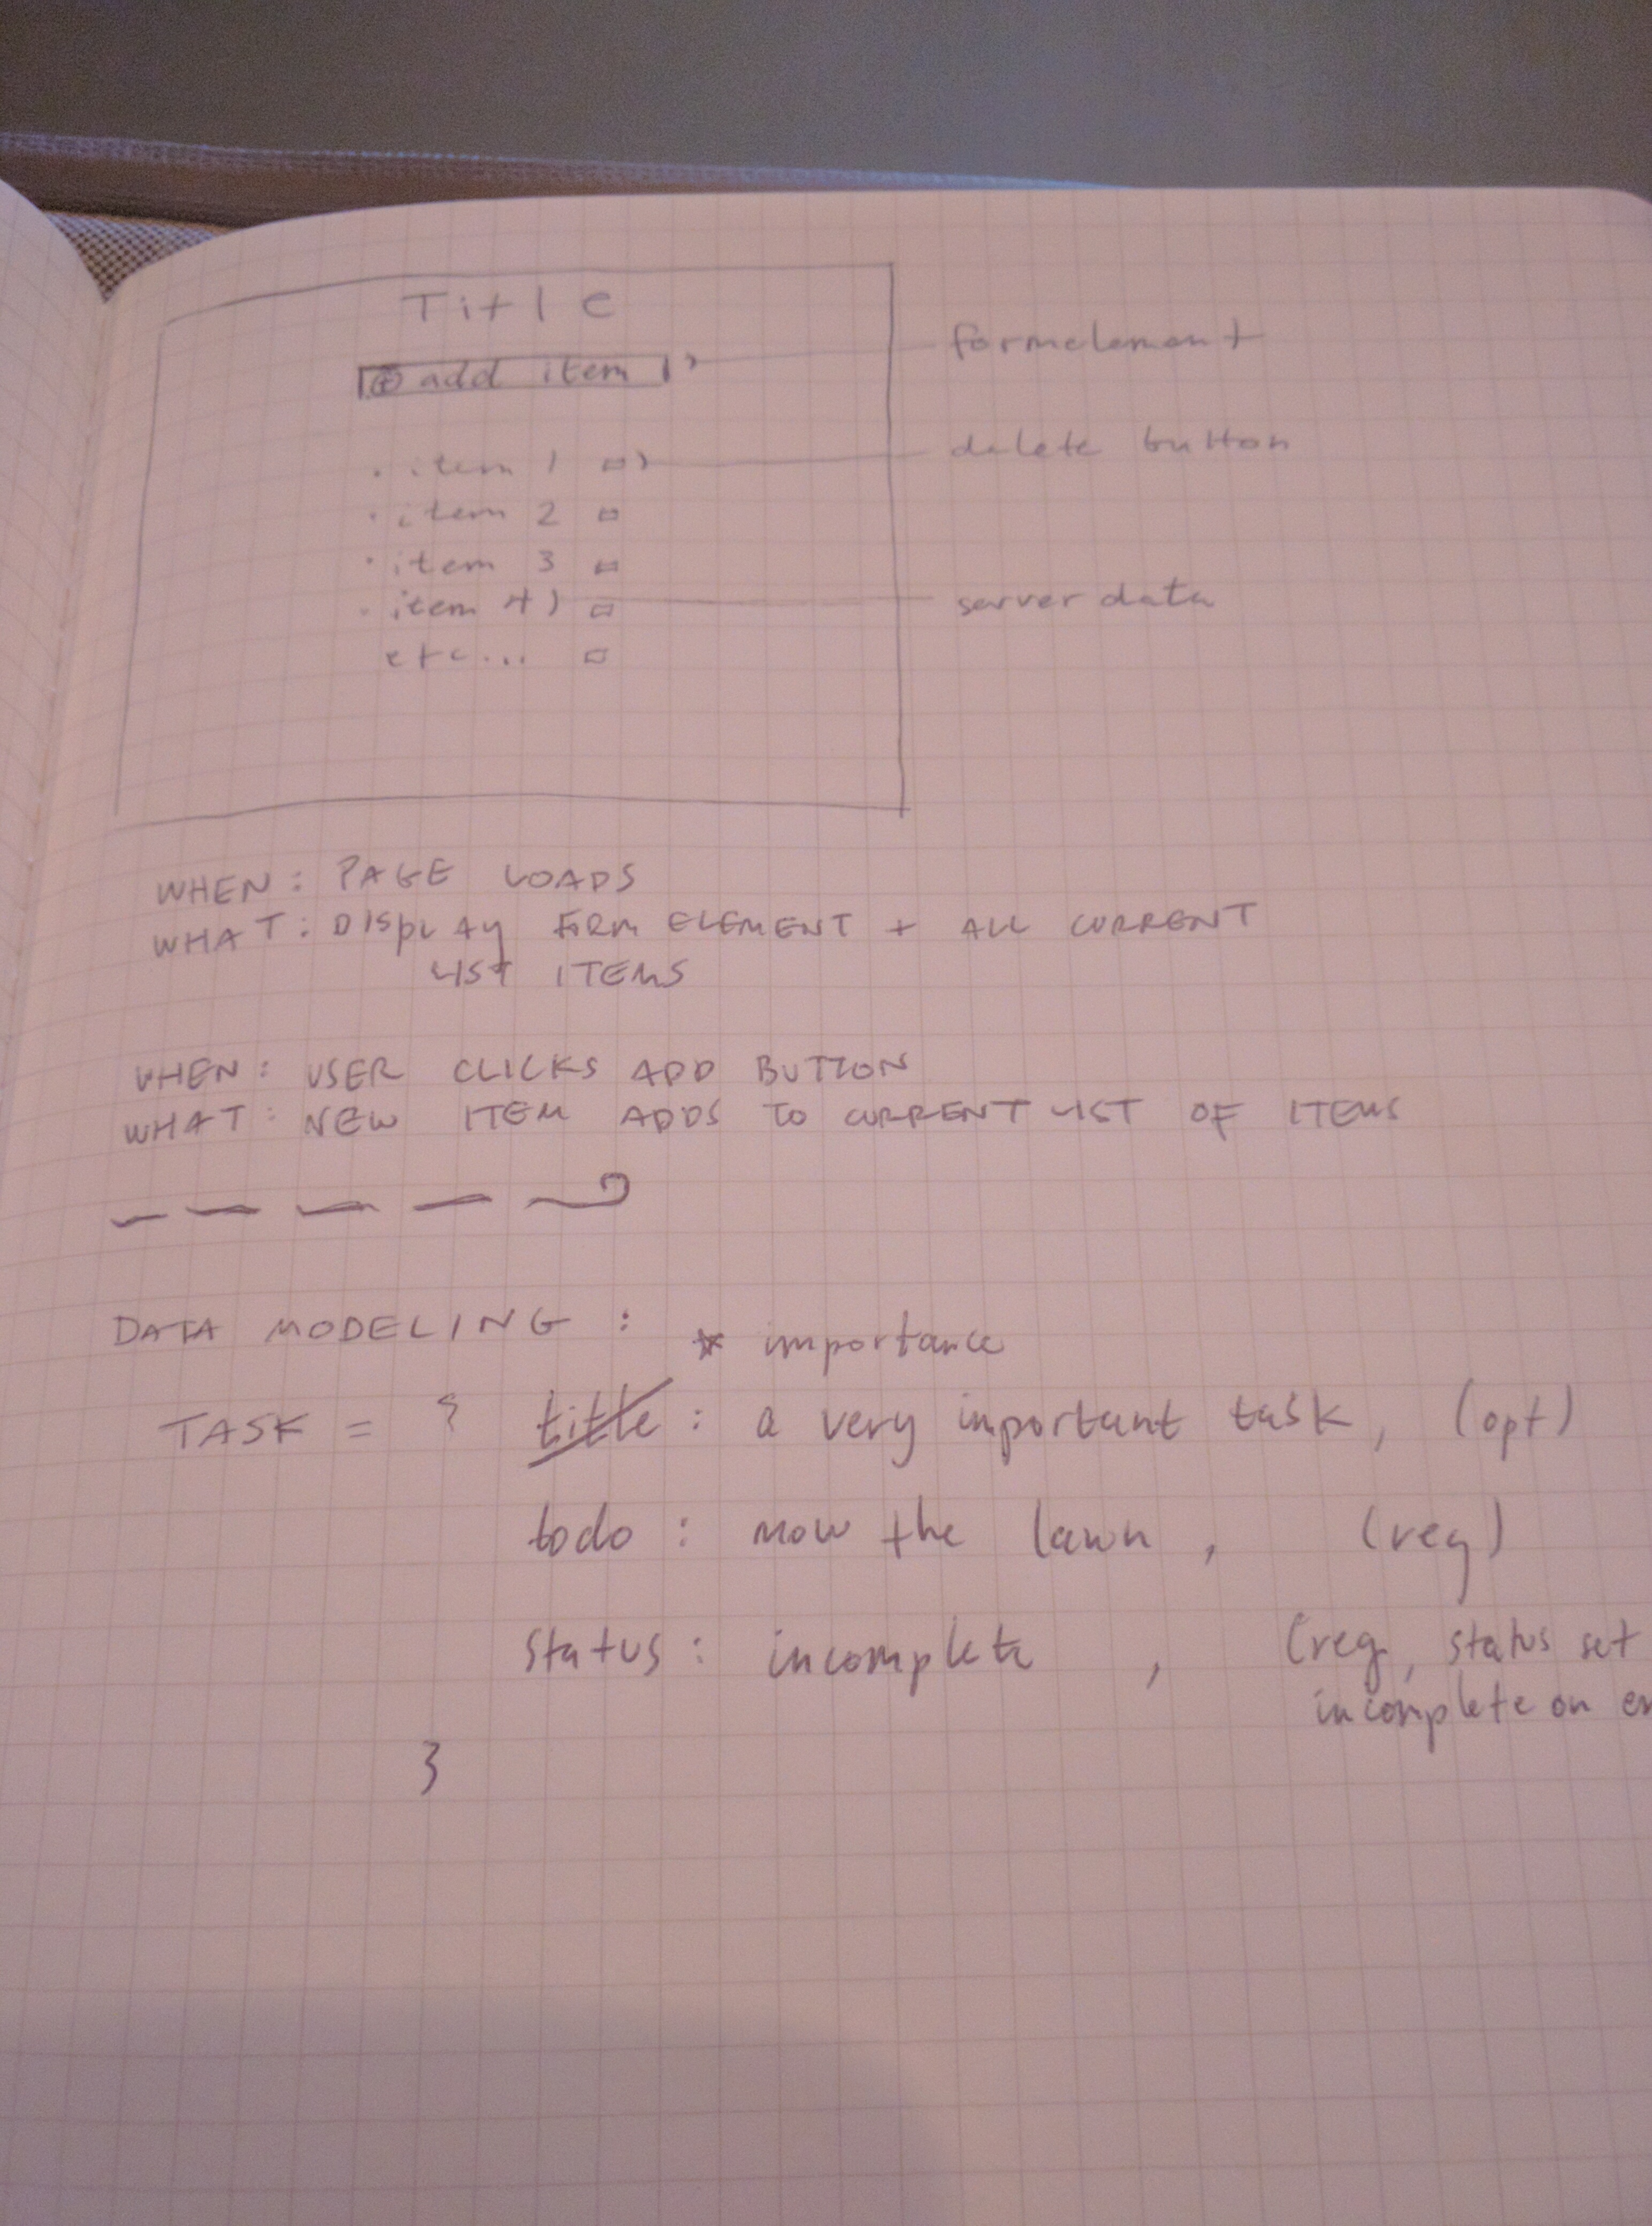 Title
⊕ add item
formelement
· item 1
delete button
· item 2
· item 3
· item 4)
server data
etc...
WHEN: PAGE LOADS
WHAT: DISPLAY FORM ELEMENT + ALL CURRENT
LIST ITEMS
WHEN: USER CLICKS ADD BUTTON
WHAT: NEW ITEM ADDS TO CURRENT LIST OF ITEMS
DATA MODELING :
* importance
TASK = { title : a very important task, (opt)
todo : mow the lawn , (req)
status : incomplete , (req, status set
incomplete on
}